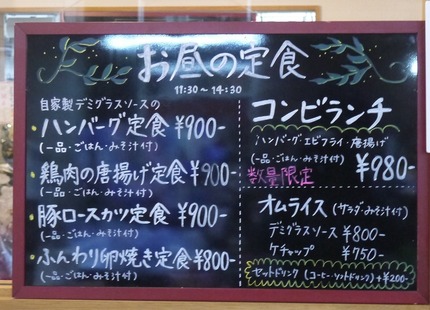 お昼の定食
11:30～14:30
自家製デミグラスソースの
・ハンバーグ定食 ¥900-
(一品・ごはん・みそ汁付)
・鶏肉の唐揚げ定食 ¥900-
(一品・ごはん・みそ汁付)
・豚ロースカツ定食 ¥900-
(一品・ごはん・みそ汁付)
・ふんわり卵焼き定食 ¥800-
(一品・ごはん・みそ汁付)
コンビランチ
ハンバーグ・エビフライ・唐揚げ
(一品・ごはん・みそ汁付)
数量限定 ¥980-
オムライス (サラダ・みそ汁付)
デミグラスソース ¥800-
ケチャップ ¥750-
セットドリンク (コーヒー・ソフトドリンク) +¥200-